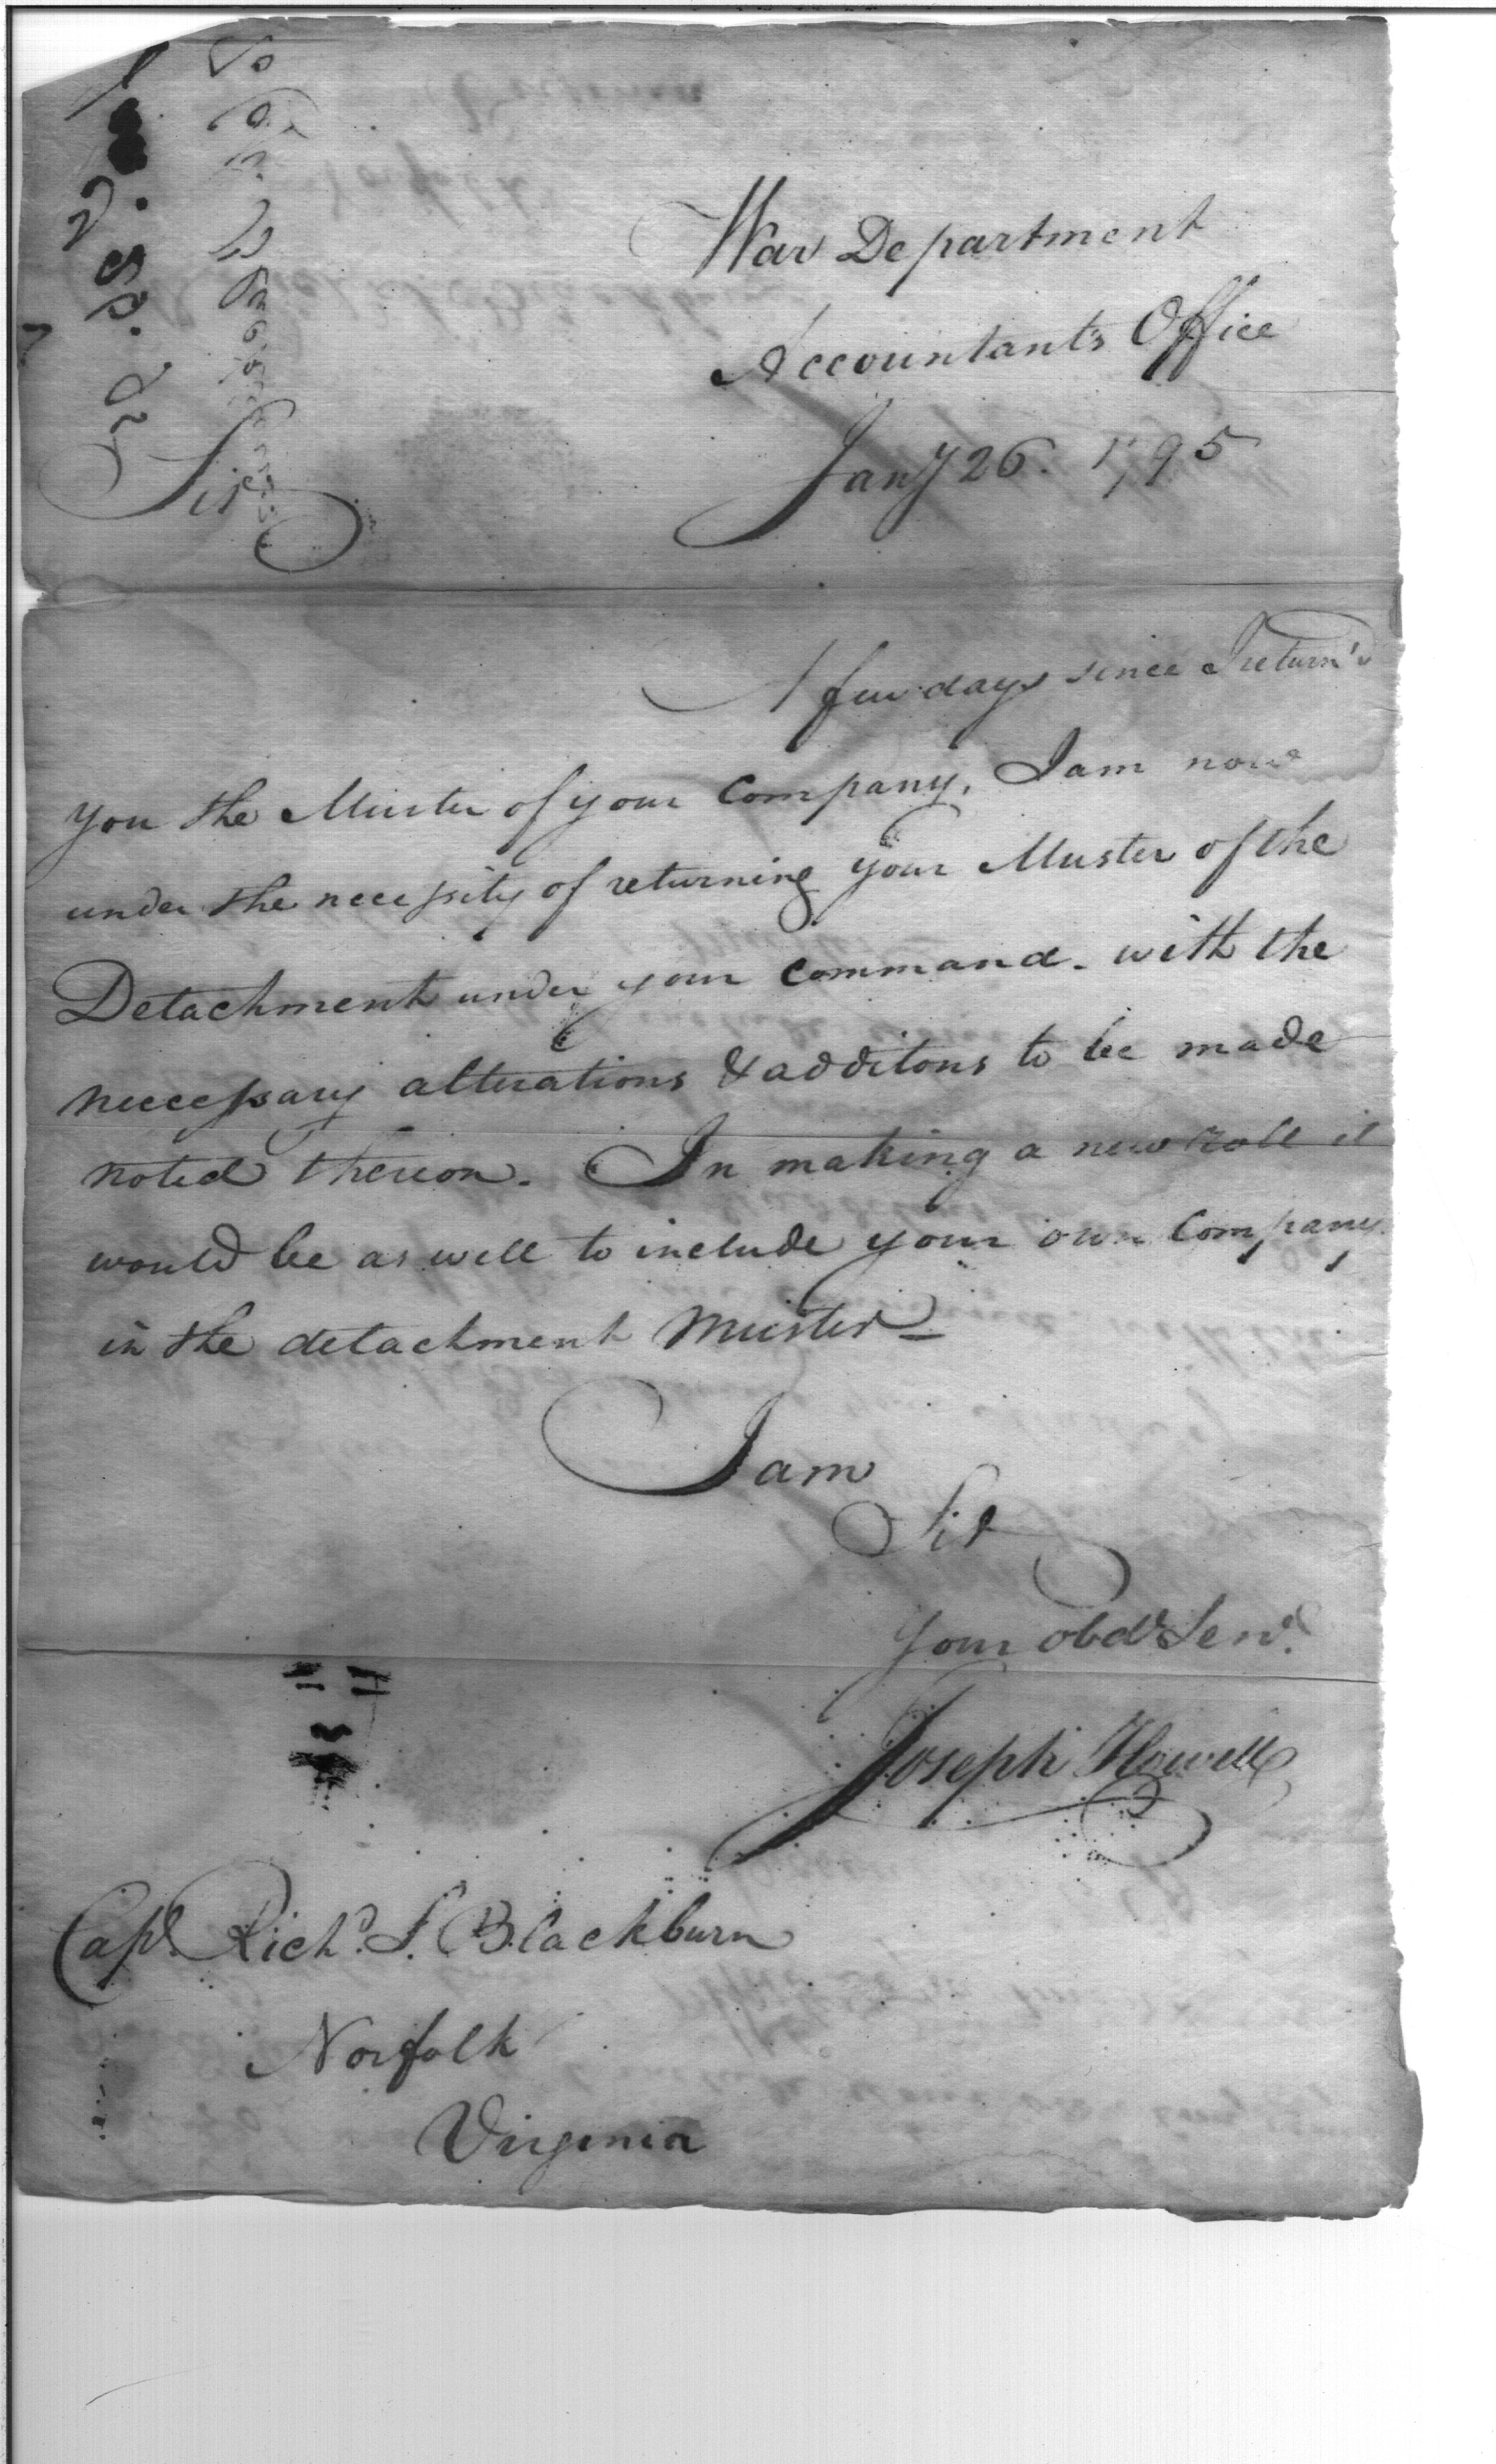 War Department
Accountant's Office
Jany 26. 1795
Sir
A few days since I return'd
you the Muster of your Company, I am now
under the necessity of returning your Muster of the
Detachment under your Command. with the
neccessary alterations & additons to be made
noted thereon. In making a new roll it
would be as well to include your own Company
in the detachment Muster
I am
Sir
Your obdt Servt.
Joseph Howell
Capt. Richd. S. Blackburn
Norfolk
Virginia